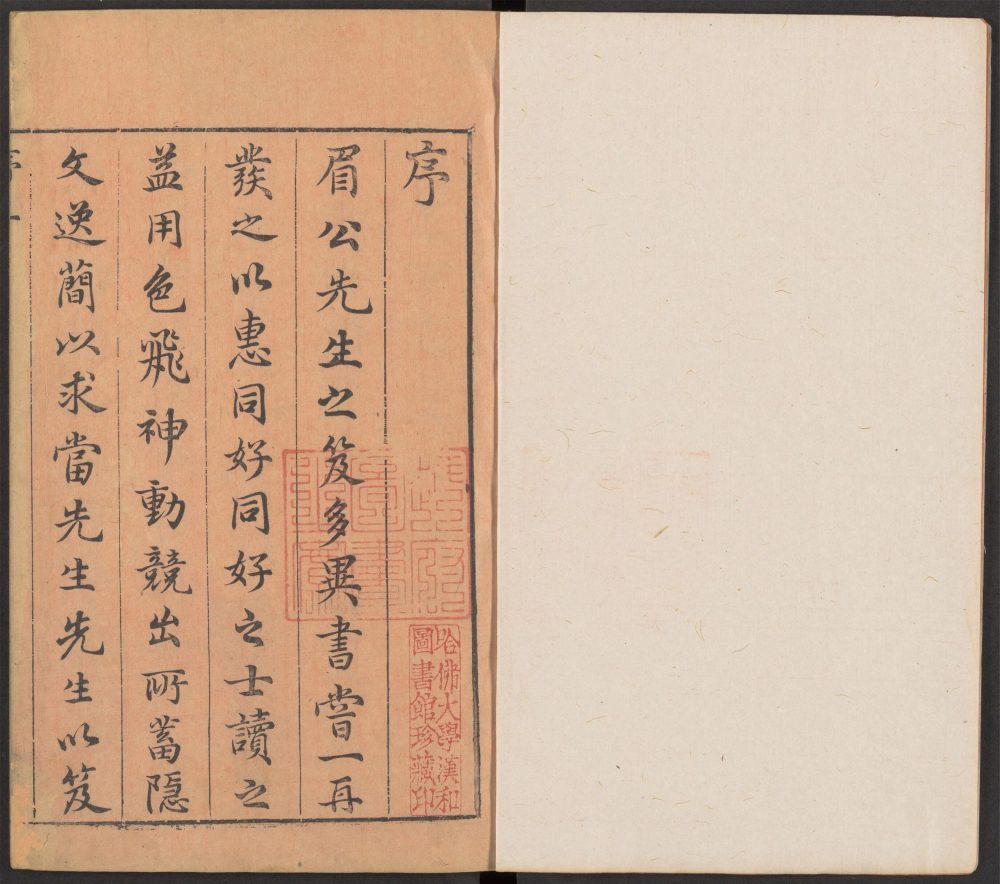 序
眉公先生之笈多異書嘗一再
發之以惠同好同好之士讀之
益用色飛神動競出所蓄隱
文逸簡以求當先生先生以笈
哈佛大學漢和
圖書館珍藏印
序
一